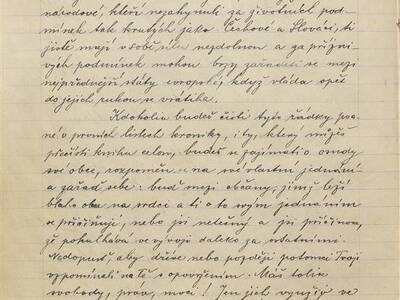 národové, kteří nezahynuli za životních pod-
mínek tak krutých jako Čechové a Slováci, ti
jistě mají v sobě sílu nezdolnou a za přízni-
vých podmínek mohou brzy zařaditi se mezi
nejpřednější státy evropské, když vláda opět
do jejich rukou se vrátila.
Kdokoliv budeš čísti tyto řádky po-
o prvních listech kroniky, i ty, který můžeš
přečísti knihu celou, budeš-li zajímati o osudy
své obce, rozpomeň se na své vlastní jednání
a zařaď sebe: buď mezi občany, jimž leží
blaho obce na srdci a ti o to svým jednáním
se přičiňují, nebo jsi netečný a jsi příčinou,
že pokulhává ve vývoji daleko za ostatními.
Nedopusť, aby dříve nebo později potomci Tvoji
vzpomínali na Tě s opovržením. Máš tolik
svobody, práv, moci! Jen jich využij ve